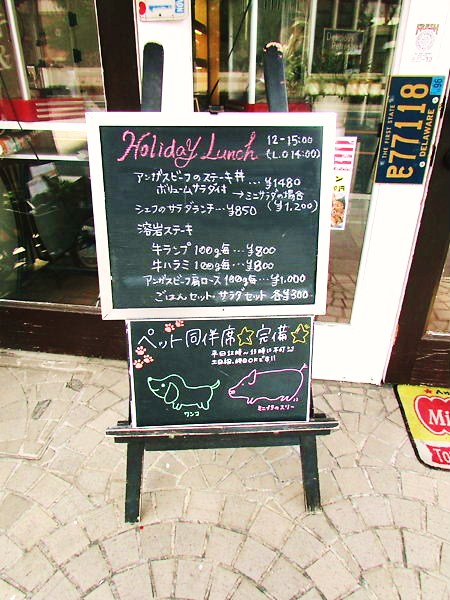 Holiday Lunch
12-15:00
(L.O 14:00)
アンガスビーフのステーキ丼
ボリュームサラダ付 … ¥1480
→ミニサラダの場合
(¥1,200)
シェフのサラダランチ … ¥850
溶岩ステーキ
牛ランプ 100g毎 … ¥800
牛ハラミ 100g毎 … ¥800
アンガスビーフ肩ロース 100g毎 … ¥1,000
ごはんセット・サラダセット 各¥300
ペット同伴席☆完備☆
ワンコ
ミニブタのスリー
THE FIRST STATE
E77118
DELAWARE
96